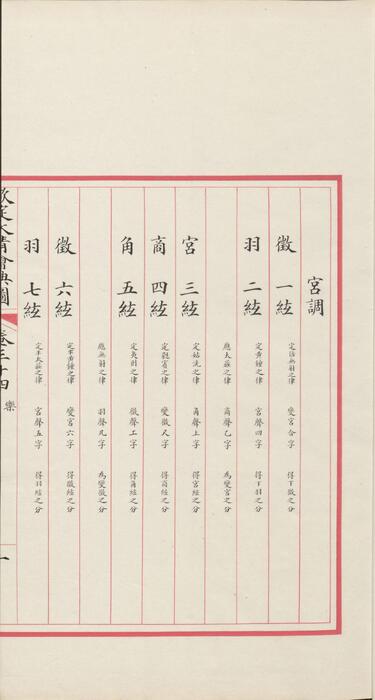 宮調
徵一絃 定倍無射之律 變宮合字 得下徵之分
羽二絃 定黃鐘之律 宮聲四字 得下羽之分
應太蔟之律 商聲乙字 為變宮之分
宮三絃 定姑洗之律 角聲上字 得宮絃之分
商四絃 定蕤賓之律 變徵尺字 得商絃之分
角五絃 定夷則之律 徵聲工字 得角絃之分
應無射之律 羽聲凡字 為變徵之分
徵六絃 定半黃鐘之律 變宮六字 得徵絃之分
羽七絃 定半太蔟之律 宮聲五字 得羽絃之分
欽定大清會典圖 卷三十四 樂 一